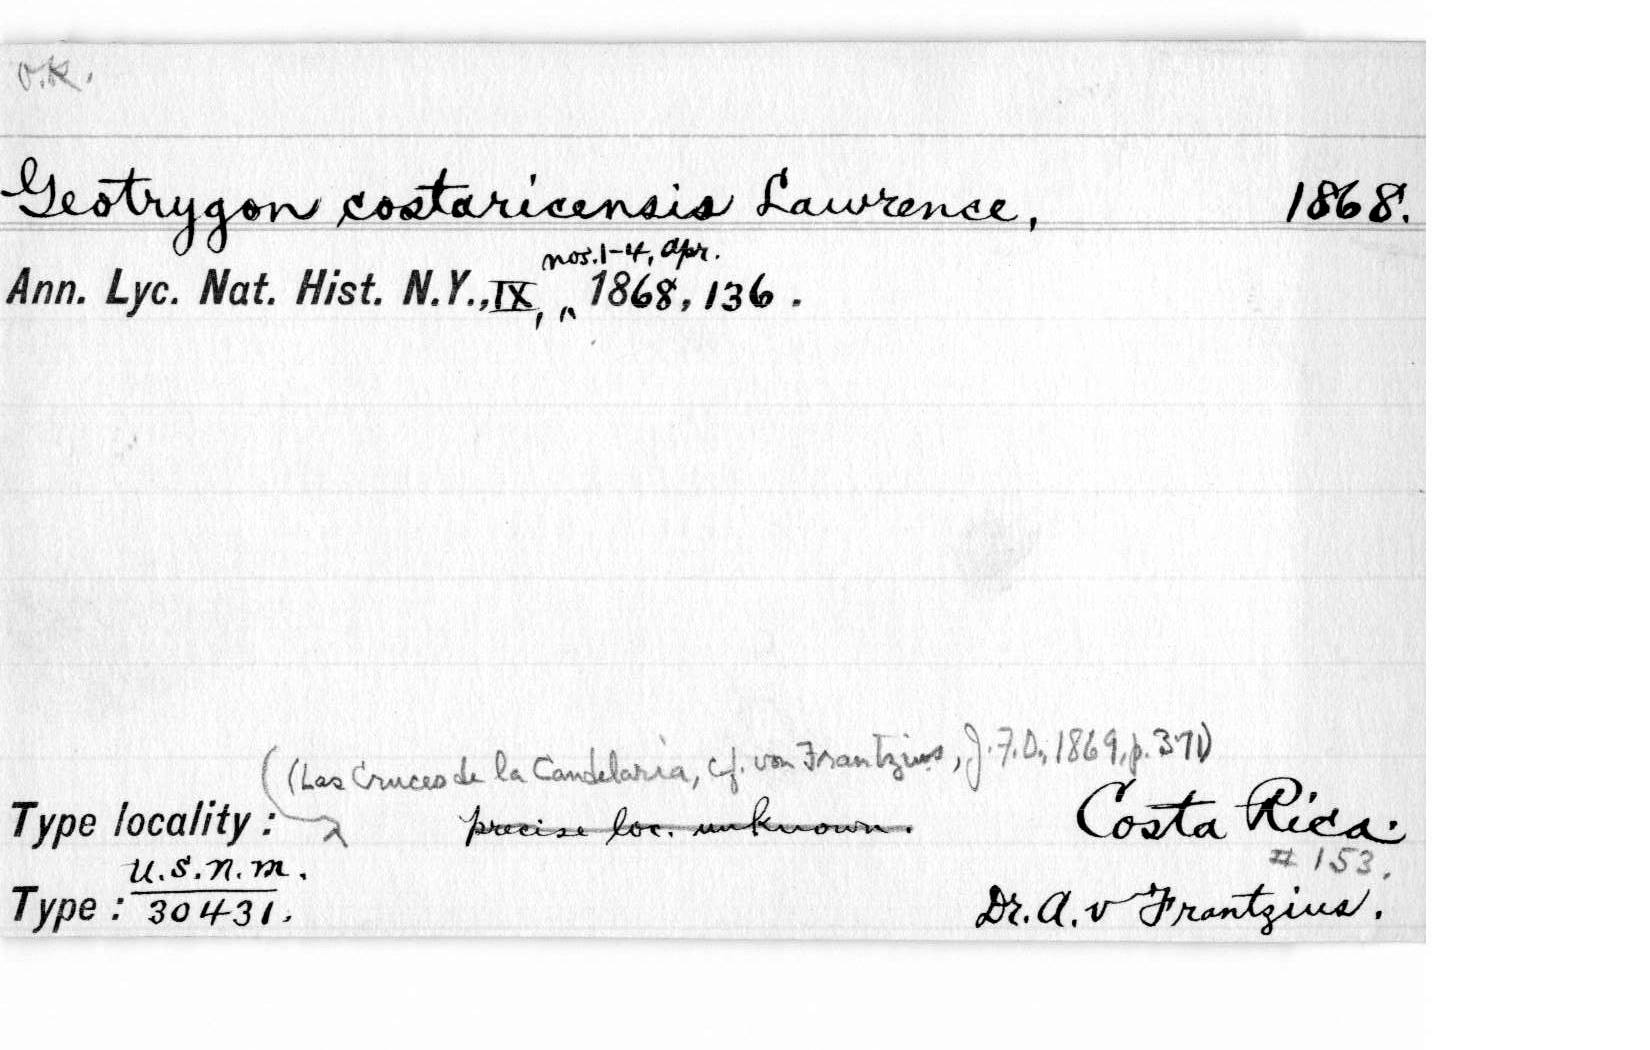 O.K.
Geotrygon costaricensis Lawrence, 1868.
nos. 1-4, Apr.
Ann. Lyc. Nat. Hist. N.Y., IX, ^ 1868, 136.
(Las Cruces de la Candelaria, cf. von Frantzius, J.F.O., 1869, p. 371)
Type locality: precise loc. unknown. Costa Rica.
U.S.N.M. # 153.
Type: 30431. Dr. A. v Frantzius.